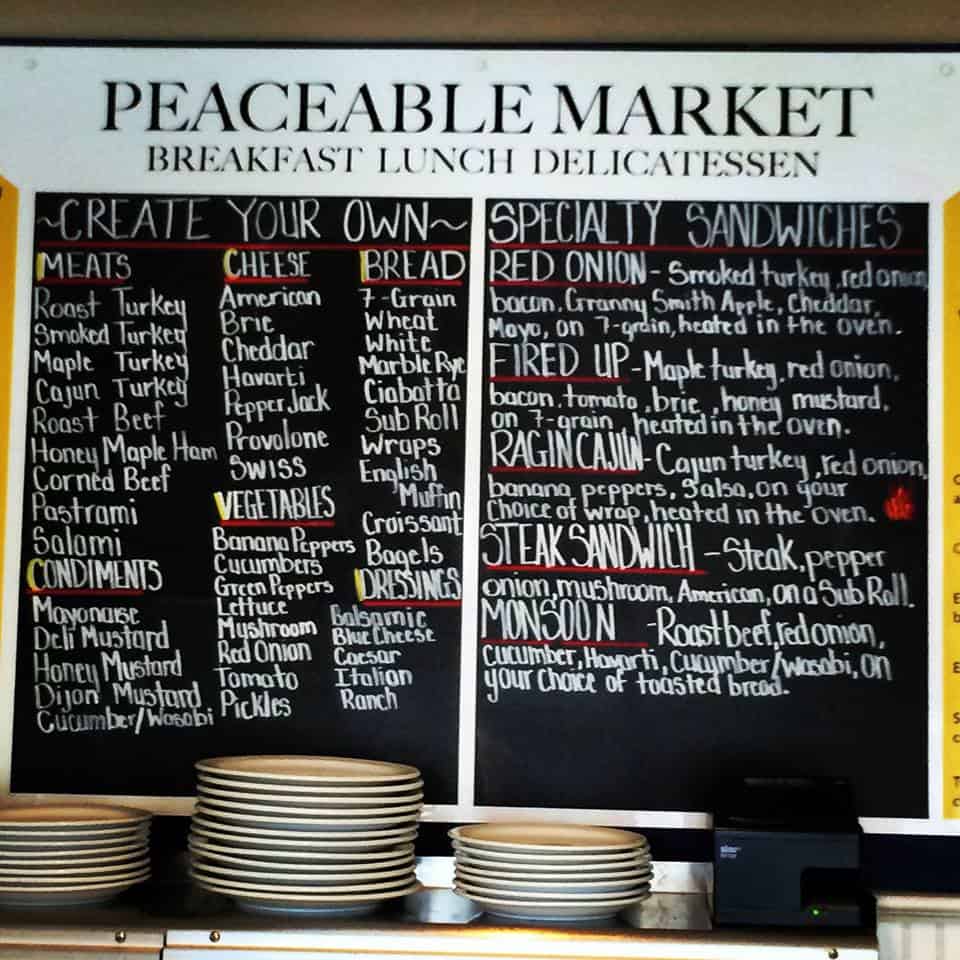 PEACEABLE MARKET
BREAKFAST LUNCH DELICATESSEN
~CREATE YOUR OWN~
MEATS
Roast Turkey
Smoked Turkey
Maple Turkey
Cajun Turkey
Roast Beef
Honey Maple Ham
Corned Beef
Pastrami
Salami
CONDIMENTS
Mayonaise
Deli Mustard
Honey Mustard
Dijon Mustard
Cucumber/Wasabi
CHEESE
American
Brie
Cheddar
Havarti
Pepper Jack
Provolone
Swiss
VEGETABLES
Banana Peppers
Cucumbers
Green Peppers
Lettuce
Mushroom
Red Onion
Tomato
Pickles
BREAD
7-Grain
Wheat
White
Marble Rye
Ciabatta
Sub Roll
Wraps
English
Muffin
Croissant
Bagels
DRESSINGS
Balsamic
Blue Cheese
Caesar
Italian
Ranch
SPECIALTY SANDWICHES
RED ONION - Smoked turkey, red onion,
bacon, Granny Smith Apple, Cheddar,
Mayo, on 7-grain, heated in the oven.
FIRED UP - Maple turkey, red onion,
bacon, tomato, brie, honey mustard,
on 7-grain, heated in the oven.
RAGIN CAJUN - Cajun turkey, red onion,
banana peppers, Salsa, on your
choice of wrap, heated in the oven.
STEAK SANDWICH - Steak, pepper
onion, mushroom, American, on a Sub Roll.
MONSOON - Roast beef, red onion,
cucumber, Havarti, Cucumber/Wasabi, on
your choice of toasted bread.
star